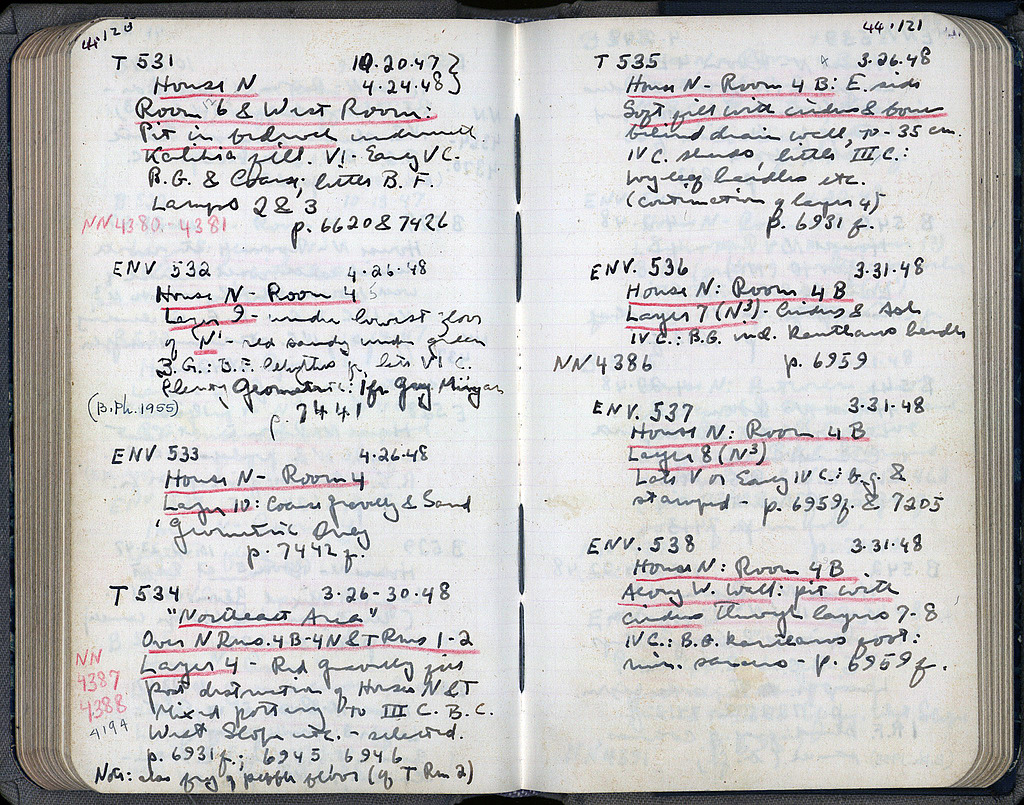 44·120
T 531 10·20·47 }
House N 4·24·48 }
Room 6 & West Room:
Pit in bedrock underneath
fill. VI - Early V C.
B.G. & Coarse; little B.F.
Lamps 2 & 3
NN 4380-4381 p. 6620 & 7426
ENV 532 4·26·48
House N - Room 4 5
Layer 9 - under lowest floor
of 'N' - red sandy under green
B.G.: B.F. fr, late VI C.
Plenty Geometric: 1 fr Gray Minyan
(B.Ph. 1955) p 7441
ENV 533 4·26·48
House N - Room 4
Layer 10: Coarse gravelly & Sand
Geometric Only
p. 7442 f.
T 534 3-26-30·48
"Northeast Area"
Over N Rms. 4B-4N & T Rms 1-2
Layer 4 - Red gravelly
NN
4387
4388
4194
post destruction of Houses N & T
Mixed pottery to III C. B.C.
West Slope etc. - selected.
p. 6931 f.; 6945 6946
Note: also frag of pebble floor (of T Rm 2)
44·121
T 535 3·26·48
House N - Room 4 B: E. side
Soft fill with cinders & bones
behind drain wall, to -35 cm.
IV C. sherds, little III C.:
handles etc.
(continuation of layer 4)
p. 6931 f.
ENV. 536 3·31·48
House N: Room 4 B
Layer 7 (N³) - Cinders & Ash
IV C.: B.G. incl. Kantharos handles
NN 4386 p. 6959
ENV. 537 3·31·48
House N: Room 4 B
Layer 8 (N³)
Late V or Early IV C.: b.g. &
stamped - p. 6959 f. & 7205
ENV. 538 3·31·48
House N: Room 4 B
Along W. Wall: pit with
cinders through layers 7-8
IV C.: B.G. Kantharos foot:
min. - p. 6959 f.